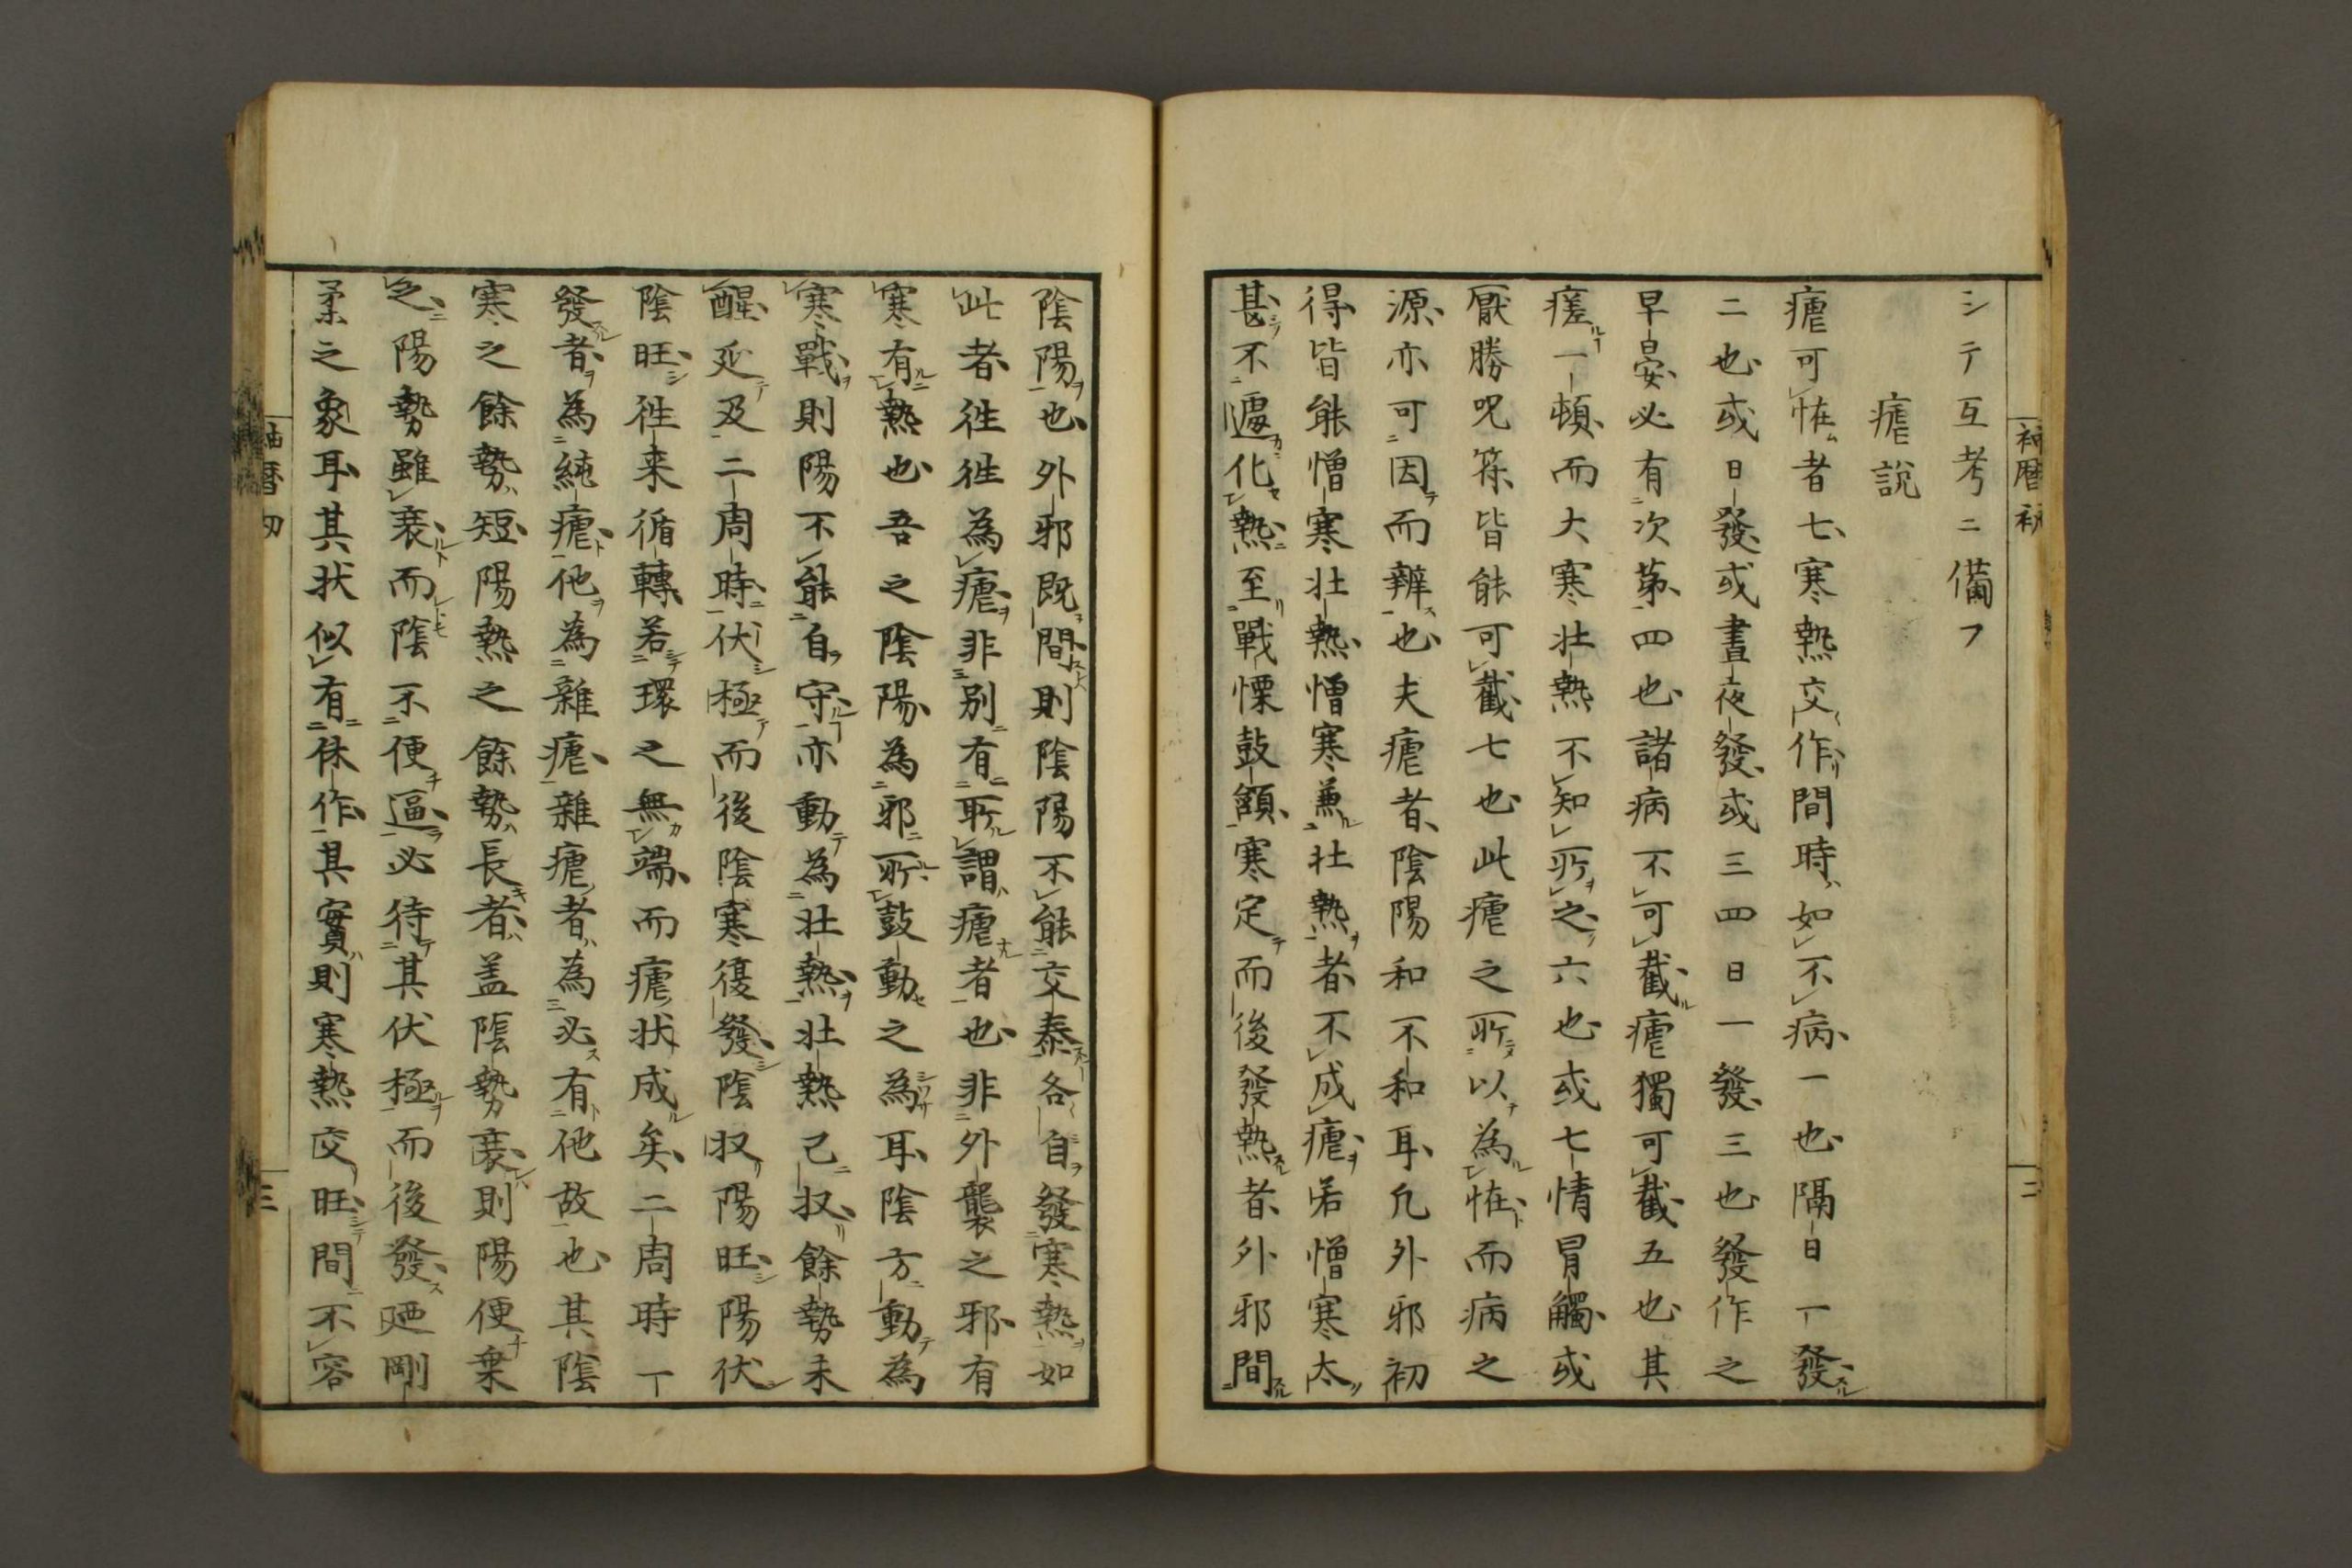 シテ互考ニ備フ
瘧說
瘧可恠者七寒熱交作間時如不病一也隔日一發
二也或日發或晝夜發或三四日一發三也發作之
早晏必有次第四也諸病不可截瘧獨可截五也其
瘥一頓而大寒壯熱不知所之六也或七情冐觸或
厭勝呪符皆能可截七也此瘧之所以為恠而病之
源亦可因而辨也夫瘧者陰陽和不和耳凡外邪初
得皆能憎寒壯熱憎寒兼壯熱者不成瘧若憎寒太
甚不遽化熱至戰慄鼓頷寒定而後發熱者外邪間
陰陽也外邪既間則陰陽不能交泰各自發寒熱如
此者徃徃為瘧非别有所謂瘧者也非外襲之邪有
寒有熱也吾之陰陽為邪所鼓動之為耳陰方動為
寒戰則陽不能自守亦動為壯熱壯熱已収餘勢未
醒延及二周時伏極而後陰寒復發陰収陽旺陽伏
陰旺徃来循轉若環之無端而瘧状成矣二周時一
發者為純瘧他為雜瘧雜瘧者為必有他故也其陰
寒之餘勢短陽熱之餘勢長者盖陰勢衰則陽便乗
之陽勢雖衰而陰不便逼必待其伏極而後發廼剛
柔之象耳其状似有休作其實則寒熱交旺間不容